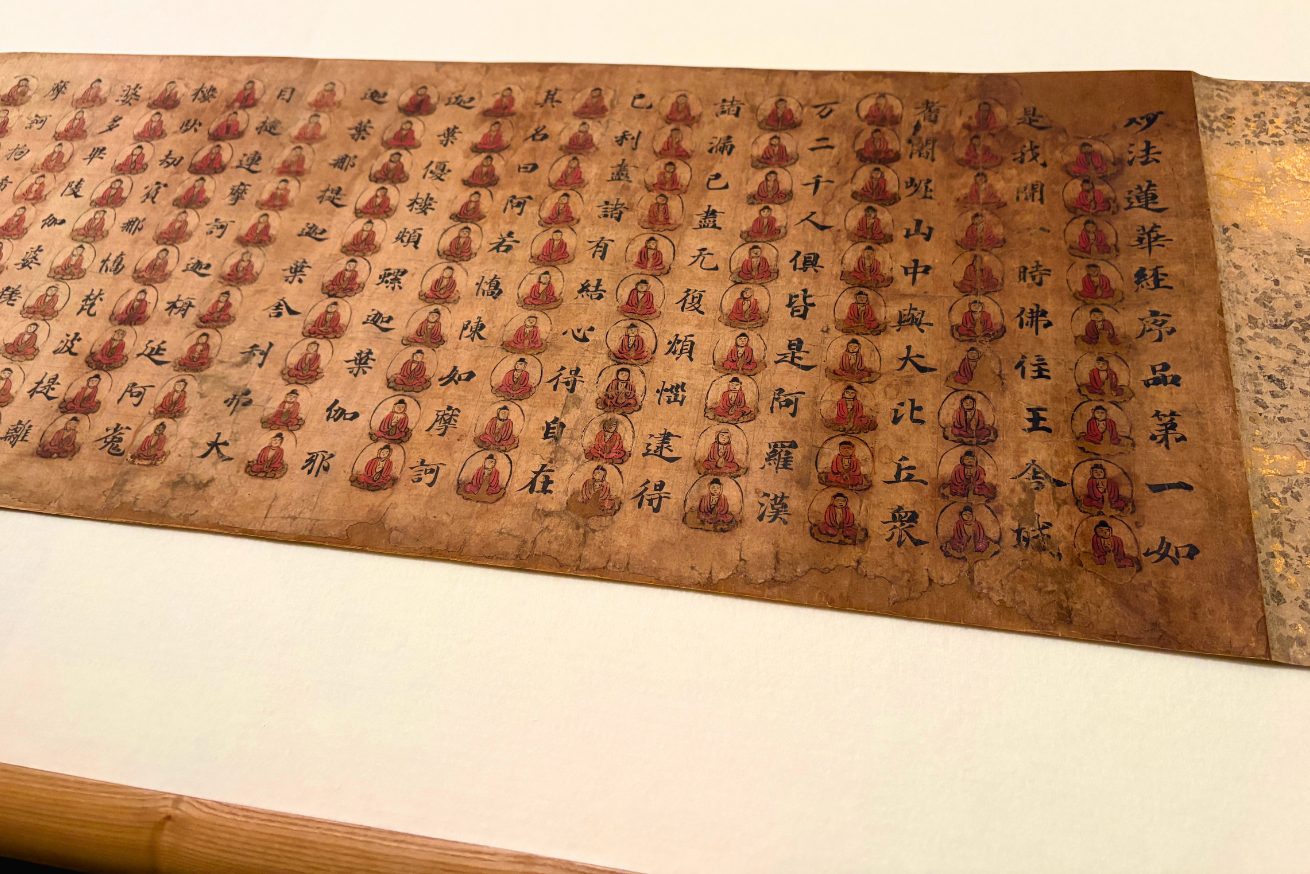 妙法蓮華經序品第一如
是我聞一時佛住王舍城
耆闍崛山中與大比丘衆
万二千人俱皆是阿羅漢
諸漏已盡无復煩惱逮得
己利盡諸有結心得自在
其名曰阿若憍陳如摩訶
迦葉優樓頻螺迦葉伽耶
迦葉那提迦葉舍利弗大
目揵連摩訶迦栴延阿㝹
樓馱劫賓那憍梵波提離
婆多畢陵伽婆蹉
摩訶拘